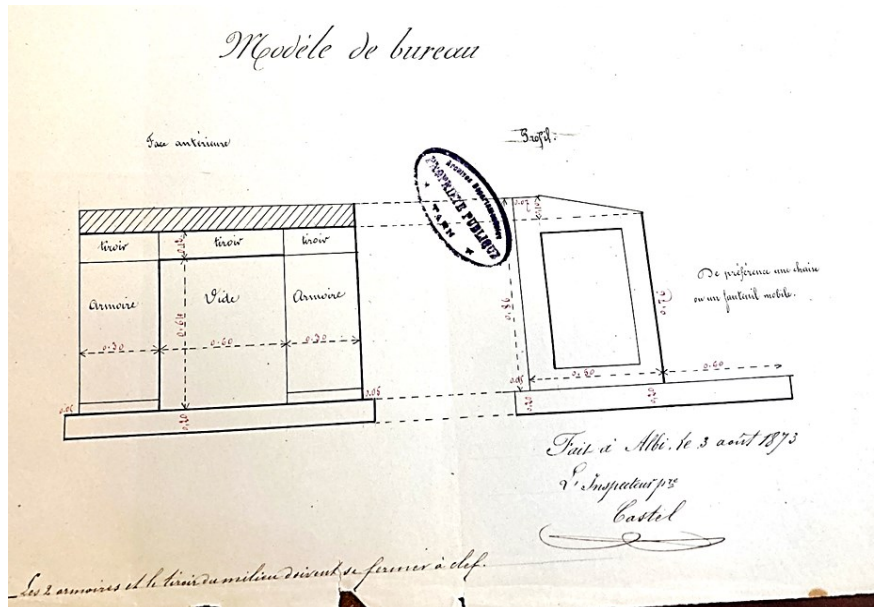 Modèle de bureau
Face antérieure
Profil:
Archives Départementales
PROPRIÉTÉ PUBLIQUE
TARN
tiroir tiroir tiroir
0.12
Armoire Vide Armoire
0.64
0.30 0.60 0.30
0.05 0.05
0.20
0.02
0.10
0.86
0.76
De préférence une chaise
ou un fauteuil mobile.
0.05 0.60 0.60
0.20 0.20
Fait à Albi, le 3 août 1873
L'Inspecteur pre
Castel
Les 2 armoires et le tiroir du milieu doivent se fermer à clef.